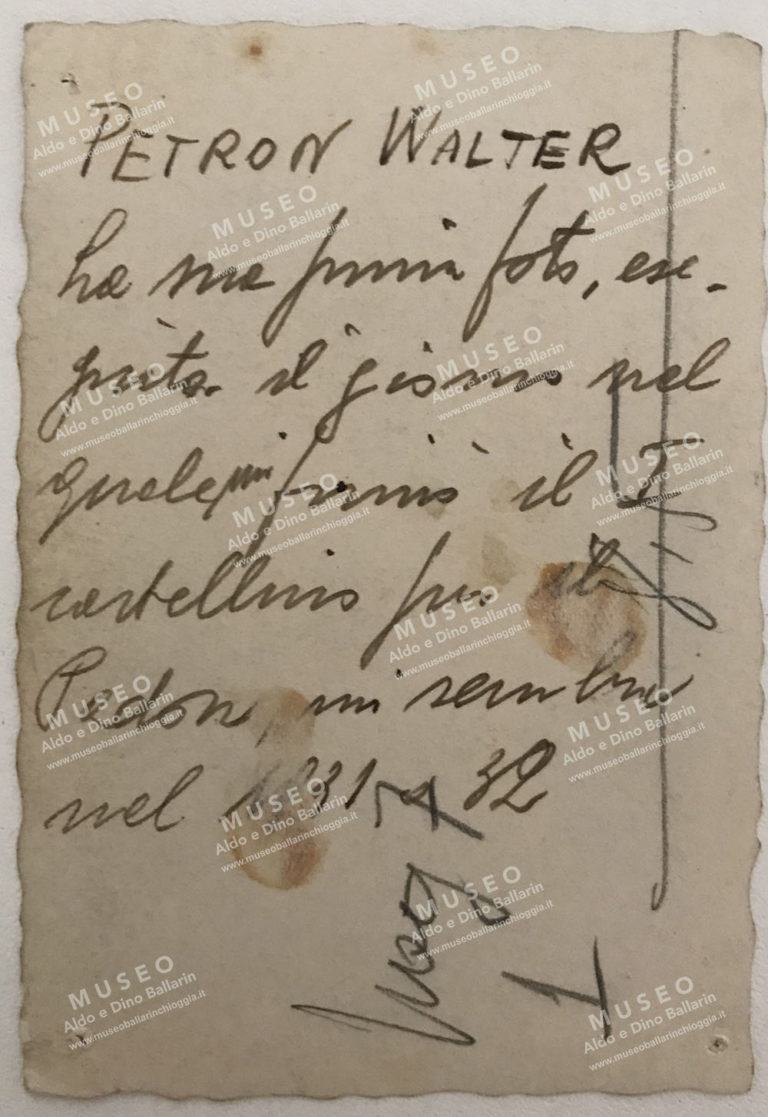 PETRON WALTER
La sua prima foto, ese-
guita il giorno nel
quale mi firmò il I°
cartellino per il
Padova, mi sembra
nel 1931 o 32
1
MUSEO
Aldo e Dino Ballarin
www.museoballarinchioggia.it